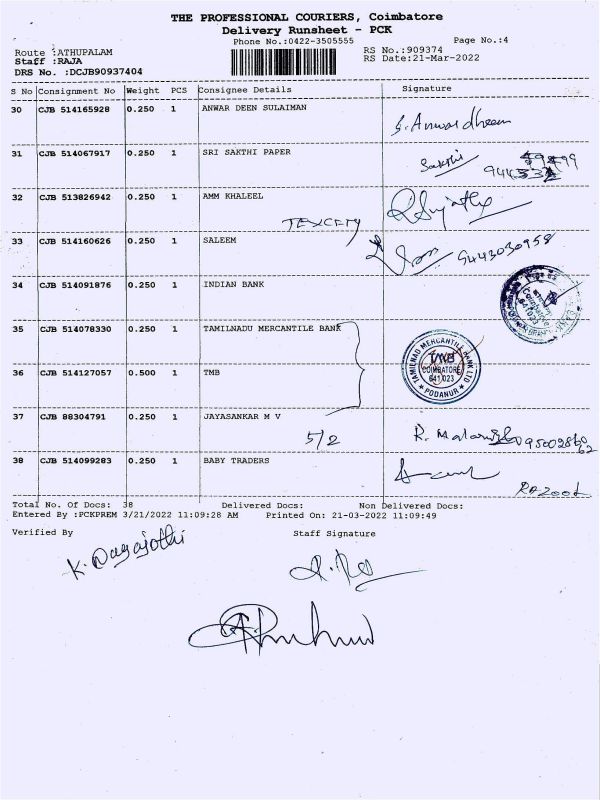 THE PROFESSIONAL COURIERS, Coimbatore
Delivery Runsheet - PCK
Phone No.:0422-3505555 Page No.:4
Route :ATHUPALAM RS No.:909374
Staff :RAJA RS Date:21-Mar-2022
DRS No. :DCJB90937404
S No Consignment No Weight PCS Consignee Details Signature
30 CJB 514165928 0.250 1 ANWAR DEEN SULAIMAN S. Anwardheen
31 CJB 514067917 0.250 1 SRI SAKTHI PAPER Sakthi
32 CJB 513826942 0.250 1 AMM KHALEEL
33 CJB 514160626 0.250 1 SALEEM 9443030958
34 CJB 514091876 0.250 1 INDIAN BANK
35 CJB 514078330 0.250 1 TAMILNADU MERCANTILE BANK
36 CJB 514127057 0.500 1 TMB
TAMILNAD MERCANTILE BANK LTD
TMB
COIMBATORE
641 023
PODANUR
37 CJB 88304791 0.250 1 JAYASANKAR M V
5/2
38 CJB 514099283 0.250 1 BABY TRADERS
Total No. Of Docs: 38 Delivered Docs: Non Delivered Docs:
Entered By :PCKPREM 3/21/2022 11:09:28 AM Printed On: 21-03-2022 11:09:49
Verified By Staff Signature